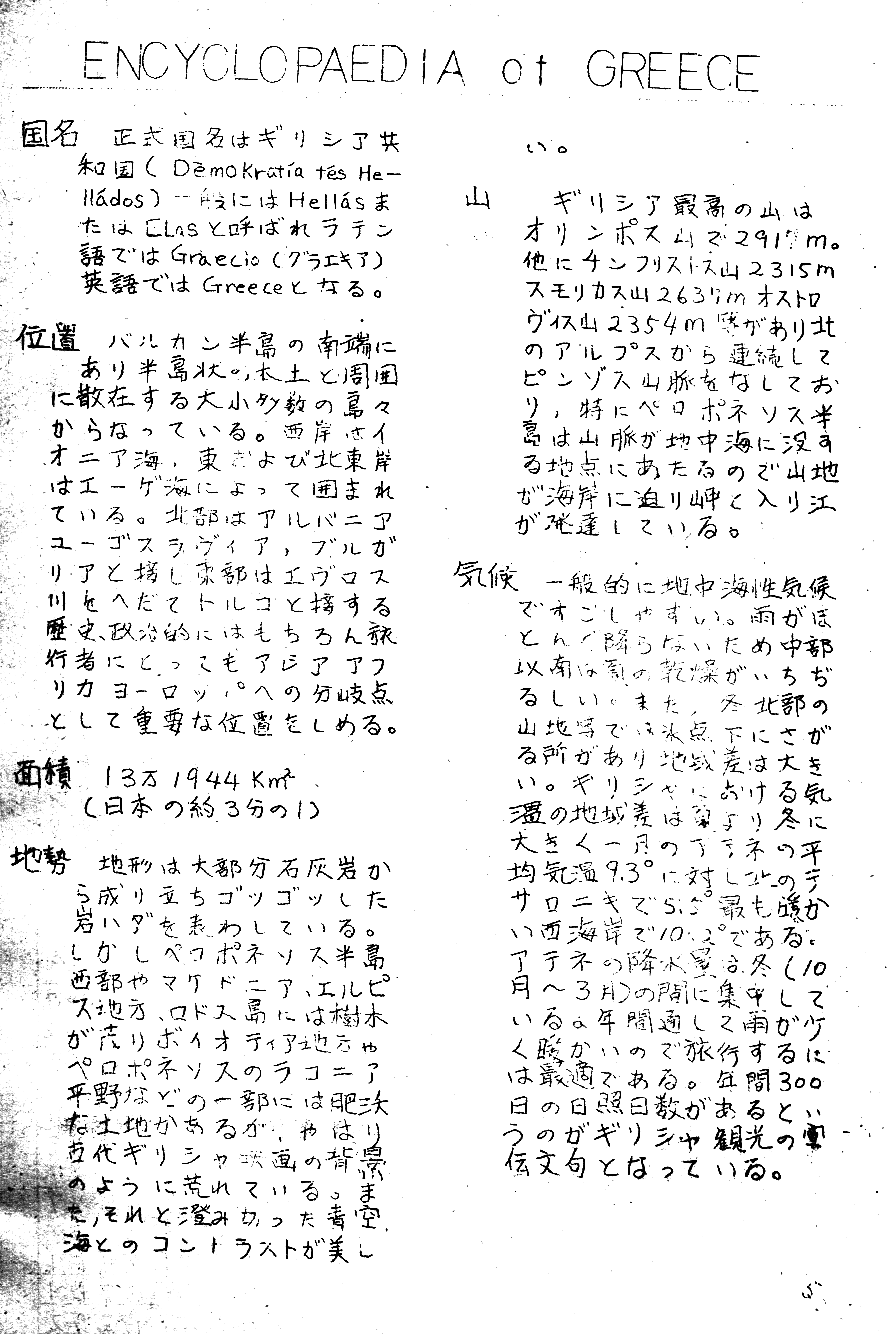 ENCYCLOPAEDIA of GREECE
国名 正式国名はギリシア共
和国( Dēmokratía tēs He-
lládos) 一般にはHellásま
たは Elasと呼ばれラテン
語ではGraecio(グラエキア)
英語ではGreeceとなる。
位置 バルカン半島の南端に
あり半島状の本土と周囲
に散在する大小多数の島々
からなっている。西岸はイ
オニア海、東および北東岸
はエーゲ海によって囲まれ
ている。北部はアルバニア
ユーゴスラヴィア,ブルガ
リアと接し東部はエヴロス
川をへだてトルコと接する
歴史、政治的にはもちろん旅
行者にとってもアジアアフ
リカヨーロッパへの分岐点
として重要な位置をしめる。
面積 13万1944Km²
(日本の約3分の1)
地勢 地形は大部分石灰岩か
ら成り立ちゴツゴツした
岩ハダを表わしている。
しかしペロポネソス半島
西部やマケドニア、エルピ
ス地方、ロドス島には樹木
が茂りボイオティア地方や
ペロポネソスのラコニア
平野などの一部には肥沃
な土地があるが,やはり
古代ギリシャ映画の背景
のように荒れている。ま
た,それと澄み切った青空,
海とのコントラストが美し
い。
山 ギリシア最高の山は
オリンポス山で2917m。
他にチンフリストス山2315m
スモリカス山2637mオストロ
ヴィス山2354m等があり北
のアルプスから連続して
ピンゾス山脈をなしてお
り,特にペロポネソス半
島は山脈が地中海に没す
る地点にあたるので山地
が海岸に迫り岬と入り江
が発達している。
気候 一般的に地中海性気候
ですごしやすい。雨がほ
とんど降らないため中部
以南は夏の乾燥がいちぢ
るしい。また,冬北部の
山地等では氷点下にさが
る所があり地域差は大き
い。ギリシャにおける気
温の地域差は夏より冬に
大きく一月のアテネの平
均気温9.3°に対し北のテ
サロニキで5.5°最も暖か
い西海岸で10.2°である。
アテネの降水量は冬(10
月～3月)の間に集中して
いるが年間通して雨が少
くは暖かいで旅行するに
は最適である。年間300
日の日照日数があるとい
うのがギリシャ観光の宣
伝文句となっている。
5